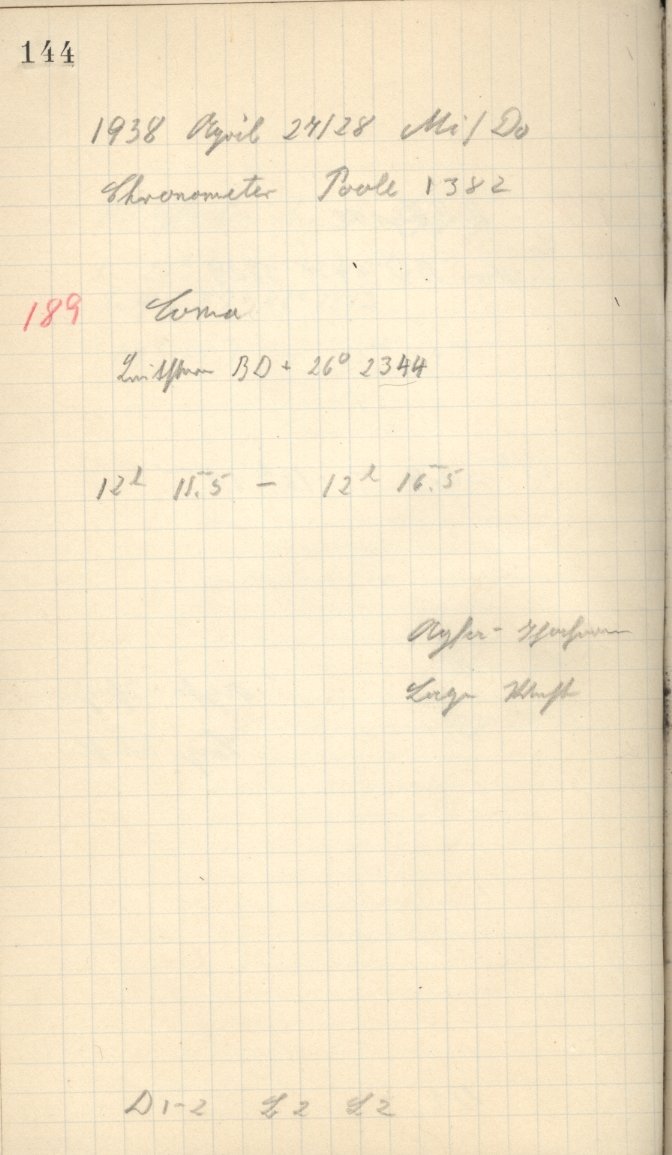 144
1938 April 27/28 Mi/Do
Chronometer Poole 1382
189 Coma
Leitstern BD + 26° 2344
12h 15.5 – 12h 16.5
Lage West
D 1-2 L 2 L 2